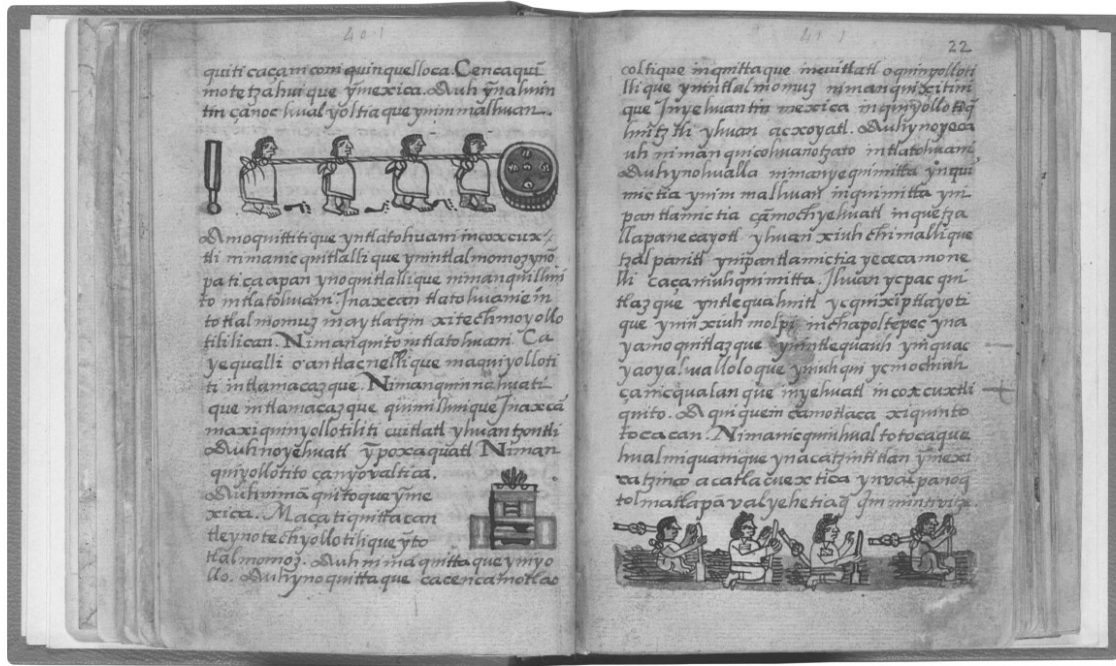 quiti caçan icom quinquelloca. Cencaquī
motetzahuique ȳmexica. Auh ȳnalmin
tin çanoc hual yoltia que ynin malhuan.
Amo quittitique yntlatohuani incoxcux
tli niman ic quitlalli que ynintlalmomozynō
pa ticaapan ynoquitlallique nimanquillhui
to intlatohuani. Inaxcan tlatohuanie in
totlalmomuz maytlatzin xitechmoyollo
tililican. Niman quito intlatohuani. Ca
yequalli oantlacnellique maquiyolloti
ti intlamacazque. Nimanquinnahuati
que intlamacazque quimilhuique Inaxcā
maxiquinyollotiliti cuitlatl yhuan tzontli
Auh noyehuatl ȳpoxaquatl Niman
quiyollotito çanyovaltica.
Auhnimā quitoque ȳme
xica. Maçatiquittacan
tleynotechyollotilique ȳto
tlalmomoz. Auh nimā quittaque yniyo
llo. Auhynoquittaque cacencamotlao
401
411
22
coltique inquittaque incuitlatl oquinyolloti
llique ynintlalmomuz niman quixitini
que Inyehuantin mexica inquiyollotiq̄
huitztli yhuan acxoyatl. Auhynoyeca
uh niman quicohuanotzato intlatohuani
Auhynohualla nimanyequimitta ynqui
mictia ynim malhuan inquimitta yni
pantlamictia camochyehuatl inquetza
llapanecayotl yhuan xiuhchimallique
tzalpanitl ynipantlamictia yececamone
lli caçaniuhquimitta. Ihuan ycpac qui
tlazque yntlequahuitl ycquixiptlayoti
que ynin xiuhmolpi inchapoltepec yna
yamoquitlazque ynintlequauh yniquac
yaoyahualloloque yniuhqui ycmochiuh
çanicqualanque inyehuatl incoxcuxtli
quito. Aquiquein camotlaca xiquinto
tocacan. Nimanicquinhualtotocaque
hualmiquanique ynacatzintitlan ȳmexi
catzinco acatlacuextica ynvalpanoq
tolmatlapāvalyehetiaq̄